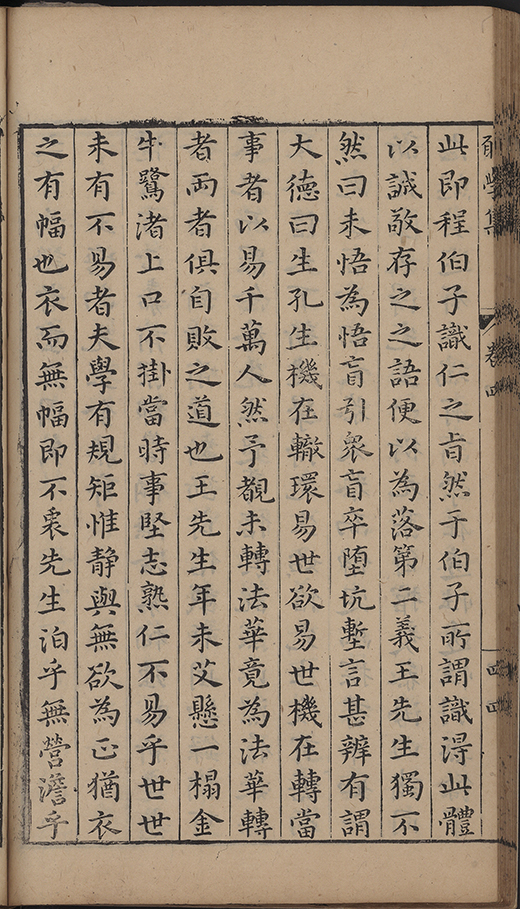 學集 卷四 四四
此即程伯子識仁之旨然于伯子所謂識得此體
以誠敬存之之語便以為落第二義王先生獨不
然曰未悟為悟盲引眾盲卒堕坑塹言甚辨有謂
大德曰生孔生機在轍環易世欲易世機在轉當
事者以易千萬人然予覩未轉法華竟為法華轉
者两者俱自敗之道也王先生年未艾懸一榻金
牛鷺渚上口不掛當時事堅志熟仁不易乎世世
未有不易者夫學有規矩惟静與無欲為正猶衣
之有幅也衣而無幅即不衺先生泊乎無營澹乎